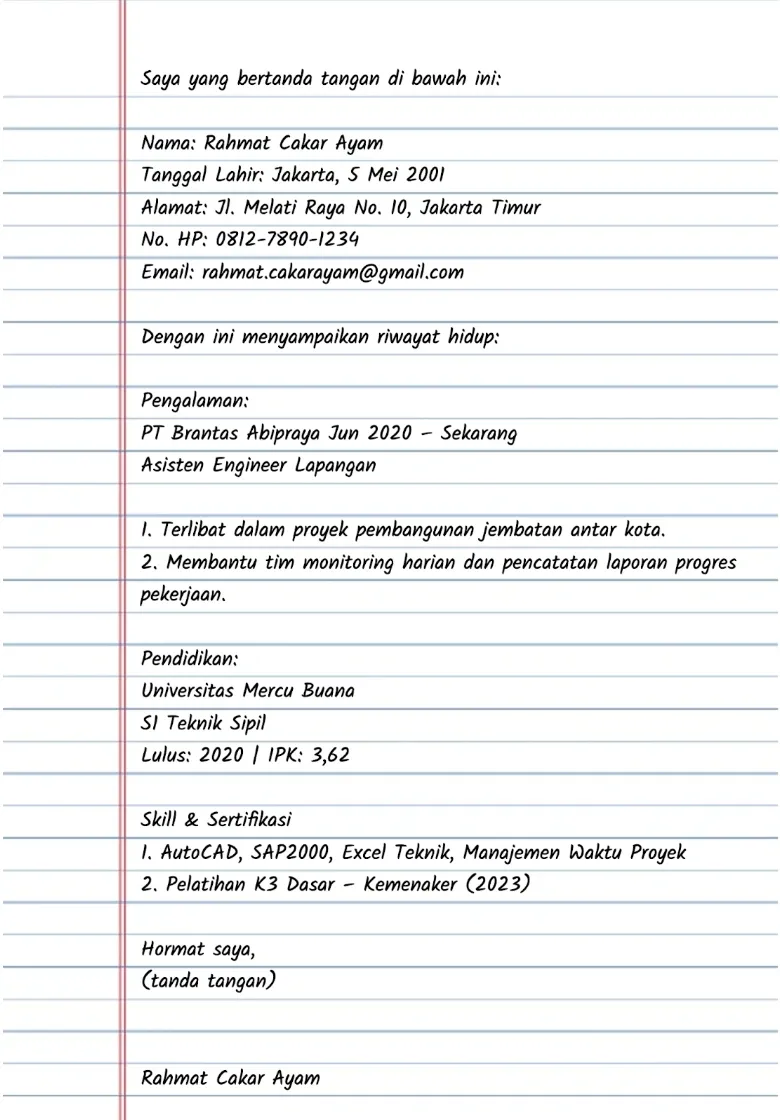 Saya yang bertanda tangan di bawah ini:
Nama: Rahmat Cakar Ayam
Tanggal Lahir: Jakarta, 5 Mei 2001
Alamat: Jl. Melati Raya No. 10, Jakarta Timur
No. HP: 0812-7890-1234
Email: rahmat.cakarayam@gmail.com
Dengan ini menyampaikan riwayat hidup:
Pengalaman:
PT Brantas Abipraya Jun 2020 – Sekarang
Asisten Engineer Lapangan
1. Terlibat dalam proyek pembangunan jembatan antar kota.
2. Membantu tim monitoring harian dan pencatatan laporan progres
pekerjaan.
Pendidikan:
Universitas Mercu Buana
S1 Teknik Sipil
Lulus: 2020 | IPK: 3,62
Skill & Sertifikasi
1. AutoCAD, SAP2000, Excel Teknik, Manajemen Waktu Proyek
2. Pelatihan K3 Dasar – Kemenaker (2023)
Hormat saya,
(tanda tangan)
Rahmat Cakar Ayam